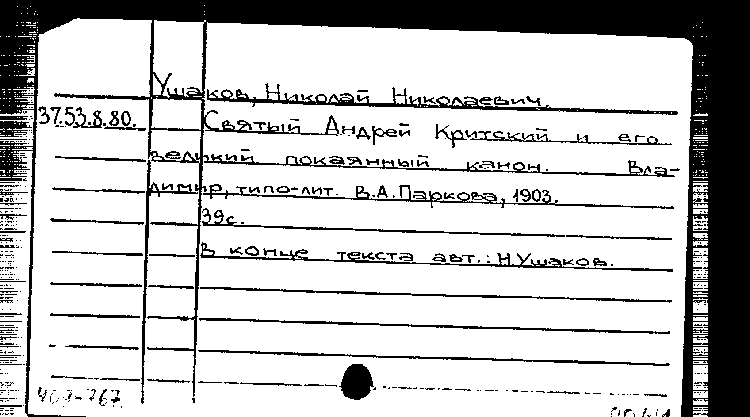 Ушаков, Николай Николаевич.
37.53.8.80. Святый Андрей Критский и его
великий покаянный канон. Вла-
димир, типо-лит. В.А.Паркова, 1903.
39с.
В конце текста авт.: Н.Ушаков.